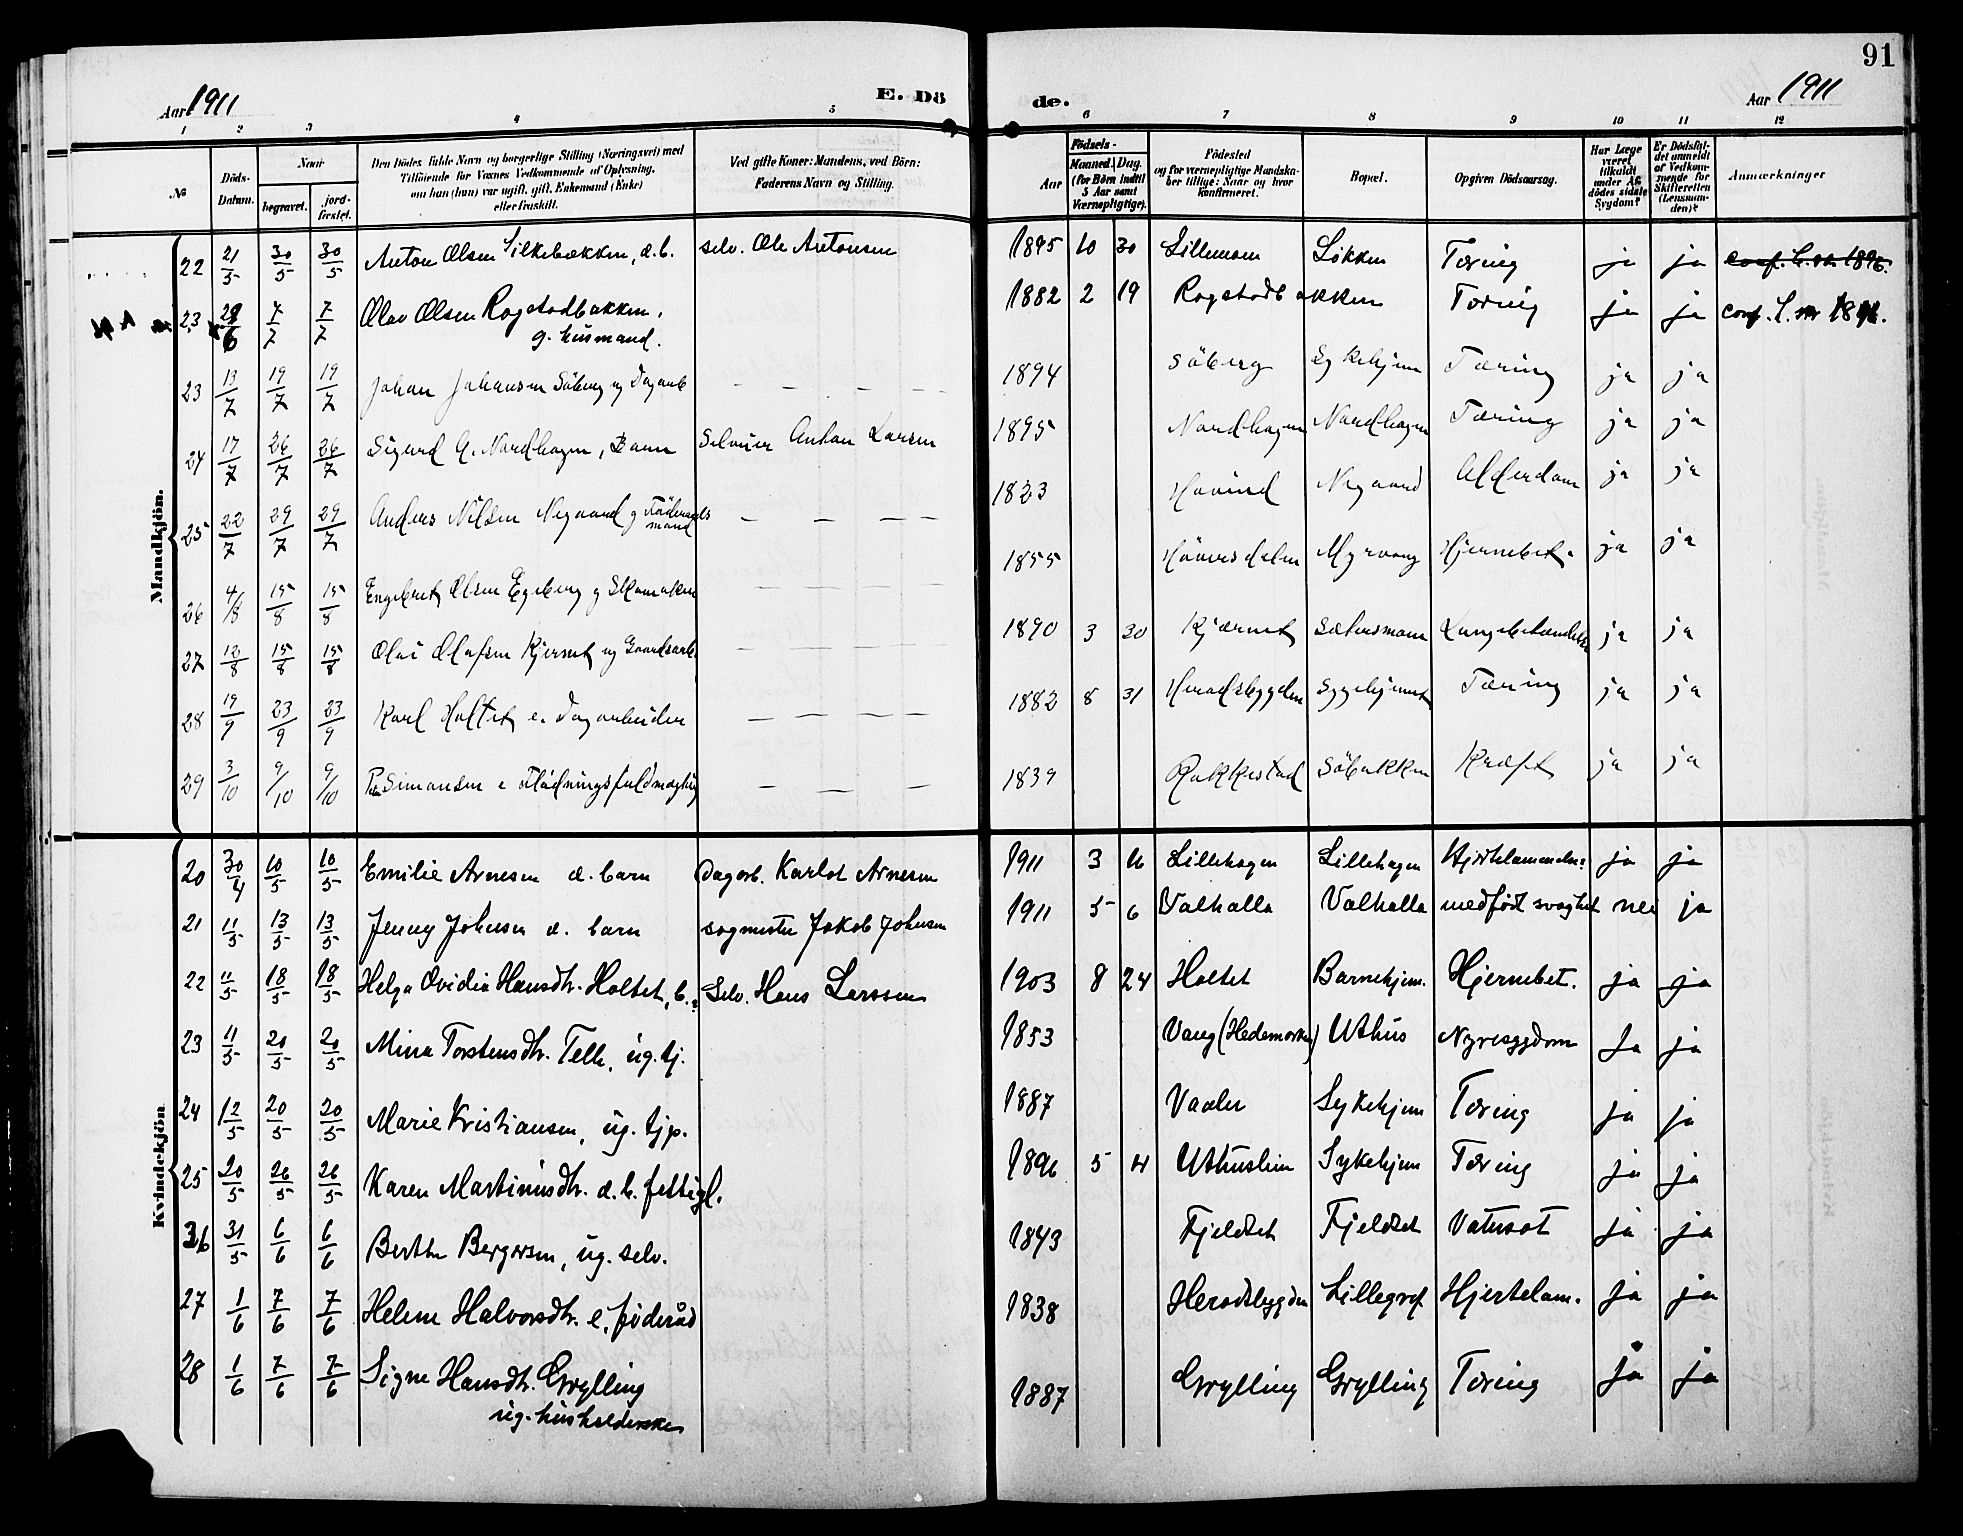 91
Aar 1911
E. Dö
de.
Aar 1911
1 2 3 4 5 6 7 8 9 10 11 12
№
Döds-Datum.
Naar
begravet.
jord-fæstet.
Den Dödes fulde Navn og borgerlige Stilling (Næringsvei) med
Tilföiende for Voxnes Vedkommende af Oplysning,
om han (hun) var ugift, gift, Enkemand (Enke)
eller fraskilt.
Ved gifte Koner: Mandens, ved Börn:
Faderens Navn og Stilling.
Födsels-
Aar
Maaned. Dag.
(for Börn indtil
5 Aar samt
Værnepligtige).
Födested
og for værnepligtige Mandska-
ber tillige: Naar og hvor
konfirmeret.
Bopæl.
Opgiven Dödsaarsag.
Har Læge
været
tilkaldt
under Af-
dödes sidste
Sygdom?
Er Dödsfal-
det anmeldt
af Vedkom-
mende for
Skifteretten
(Lensman-
den)?
Anmærkninger
Mandkjön.
22 21/5 30/5 30/5 Anton Olsen Silkebækken, d. b. selv. Ole Antonsen 1895 10 30 Lillemoen Løkken Tæring ja ja conf. 1896.
23 28/6 7/7 7/7 Olav Olsen Rogstadbakken, 1882 2 19 Rogstadbakken Tæring ja ja conf.
g. husmand.
23 13/7 19/7 19/7 Johan Johansen Söberg ug Dagarb — — — — 1894 Söberg Sykehjem Tæring ja ja
24 17/7 26/7 26/7 Sigurd A. Nordhagen, Barn Selveier Anton Larsen 1895 Nordhagen Nordhagen Tæring ja ja
25 22/7 29/7 29/7 Anders Nilsen Nygaard g Föderaads — — — — 1823 Hovind Nygaard Alderdom ja ja
mand
26 4/8 15/8 15/8 Engebret Olsen Egeberg g Skomaker — — — — 1855 Myrvang Hjernebet. ja ja
27 12/8 15/8 15/8 Olai Olafsen Kjernet ug Gaardsarb. — — — — 1890 3 30 Kjærnet Sætersmoen Lungebetændelse ja ja
28 19/9 23/9 23/9 Karl Holtet e. Dagarbeider — — — — 1882 8 31 Heradsbygden Sygehjemet Tæring ja ja
29 3/10 9/10 9/10 Simonsen e Flödningsfuldmægtig — — — 1839 Rakkestad Söbakken Kræft ja ja
Kvindekjön
20 30/4 10/5 10/5 Emilie Arnesen d. barn Dagarb. Karlot Arnesen 1911 3 16 Lillehagen Lillehagen Hjertelammelse ja ja
21 11/5 13/5 13/5 Jenny Johnsen d. barn sagmester Jakob Johnsen 1911 5 6 Valhalla Valhalla medfödt svaghet nei ja
22 11/5 18/5 18/5 Helga Ovidia Hansdtr. Holtet, b. Selv. Hans Larssen 1903 8 24 Holtet Barnehjem. Hjernebet. ja ja
23 11/5 20/5 20/5 Mina Torstensdtr. Telle, ug. tj. 1853 Vang (Hedemarken) Uthus Nyresygdom Ja ja
24 12/5 20/5 20/5 Marie Kristiansen, ug. tjp. 1887 Vaaler Sykehjem Tæring ja ja
25 20/5 26/5 26/5 Karen Martinusdtr. d. b. fattigl. 1896 5 4 Uthuslien Sykehjem Tæring ja ja
26 31/5 6/6 6/6 Berthe Bergersen, ug. selv. 1843 Fjeldset Fjeldset Vatersot ja ja
27 1/6 7/6 7/6 Helene Halvorsdtr. e. föderåd 1838 Heradsbygden Lillegraf Hjertelam. ja ja
28 1/6 7/6 7/6 Signe Hansdtr. Grylling 1887 Grylling Grylling Tæring ja ja
ug. husholderske